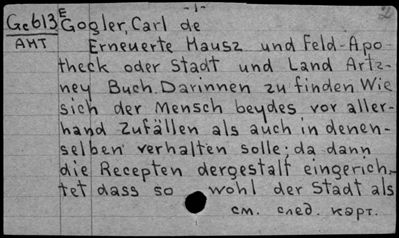 - 1 -
2
Gc613 E
AHT
Gogler, Carl de
Erneuerte Hausz und Feld-Apo-
theck oder Stadt und Land Artz-
ney Buch. Darinnen zu finden Wie
sich der Mensch beydes vor aller-
hand Zufällen als auch in denen-
selben verhalten solle; da dann
die Recepten dergestalt eingerich-
tet dass so wohl der Stadt als
см. след. карт.